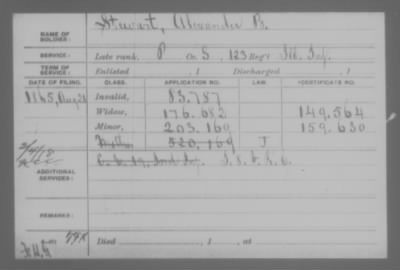 NAME OF SOLDIER: Stewart, Alexander B.
SERVICE: Late rank, P Co. S, 123 Reg't Ill. Inf.
TERM OF SERVICE: Enlisted , 1 Discharged , 1
DATE OF FILING. CLASS. APPLICATION NO. LAW. CERTIFICATE NO.
1865, Aug 21 Invalid, 83.787
Widow, 176.682 149.564
Minor, 203.169 159.630
520.169 J
ADDITIONAL SERVICES:
REMARKS:
Died , 1 , at